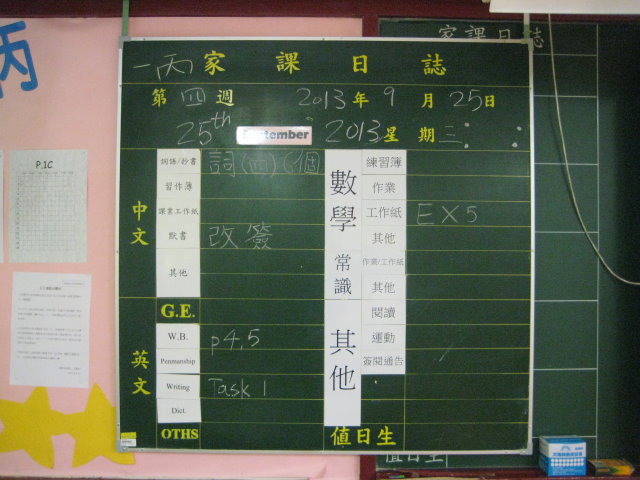 丙
家課日誌
一丙 家課日誌
第四週 2013年9月25日
25th September 2013 星期三
P.1C
中文
詞語/抄書 詞(四)(個
習作簿
課業工作紙
默書 改簽
其他
英文
G.E.
W.B. p4,5
Penmanship
Writing Task 1
Dict.
OTHS
數學
練習簿
作業
工作紙 EX5
其他
常識
作業/工作紙
其他
其他
閱讀
運動
簽閱通告
值日生
值日生